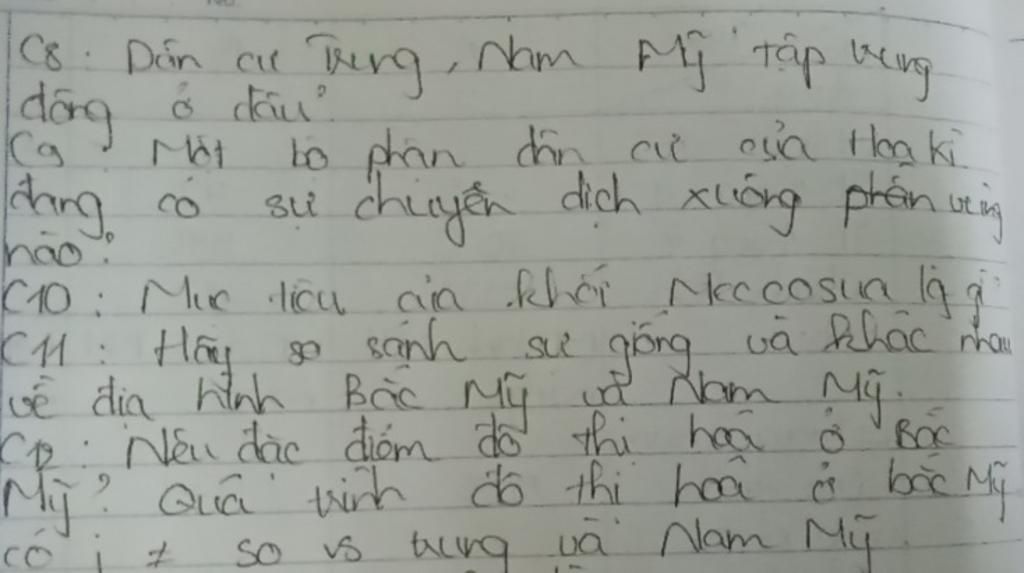 C8: Dân cư Trung, Nam Mỹ tập trung
đông ở đâu?
C9: Một bộ phận dân cư của Hoa Kì
đang có sự chuyển dịch xuống phần vùng
nào?
C10: Mục tiêu của khối Meccosua là gì
C11: Hãy so sánh sự giống và khác nhau
về địa hình Bắc Mỹ và Nam Mỹ.
C12: Nêu đặc điểm đô thị hoá ở Bắc
Mỹ? Quá trình đô thị hoá ở bắc Mỹ
có j ≠ so vs trung và Nam Mỹ